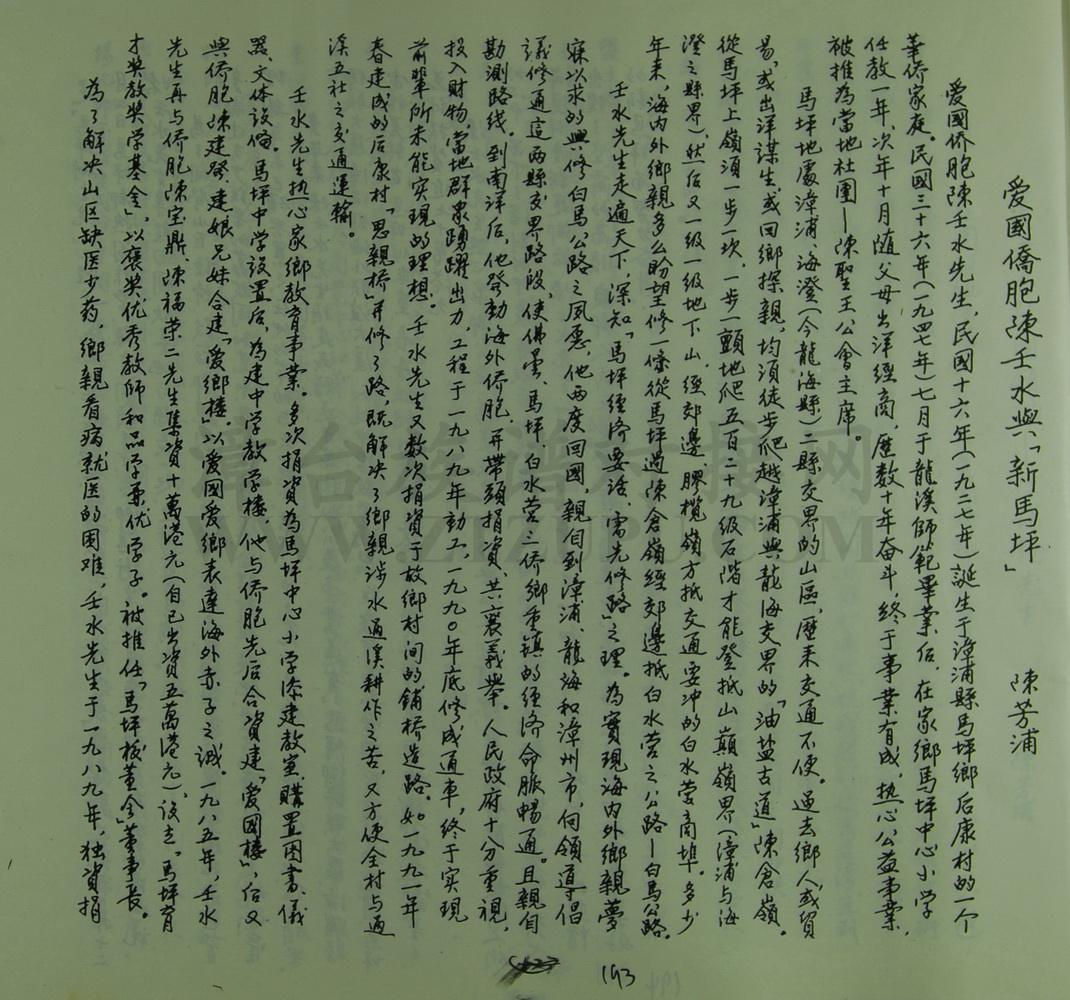 愛國僑胞陳壬水與「新馬坪」
陳芳浦
愛國侨胞陳壬水先生,民國十六年(一九二七年)誕生于漳浦縣馬坪鄉后康村的一个
華侨家庭。民國三十六年(一九四七年)七月于龍溪師範畢業后,在家鄉馬坪中心小学
任教一年,次年十月随父母出洋經商,歷数十年奋斗,終于事業有成,热心公益事業,
被推為當地社團—陳聖王公會主席。
馬坪地處漳浦、海澄(今龍海縣)二縣交界的山區,歷来交通不便。過去鄉人或貿
易,或出洋謀生,或回鄉探親,均須徒步爬越漳浦與龍海交界的「油盐古道」陳倉嶺。
從馬坪上嶺須一步一坎,一步一顫地爬五百二十九級石階才能登抵山巔嶺界(漳浦与海
澄之縣界),然后又一級一級地下山,經郊邊、膠欖嶺方抵交通要冲的白水营商埠。多少
年来,海内外鄉親多么盼望修一條從馬坪過陳倉嶺經郊邊抵白水营之公路—白馬公路。
壬水先生走遍天下,深知「馬坪經济要活,需先修路」之理。為實現海内外鄉親夢
寐以求的興修白馬公路之夙愿,他两度回國,親自到漳浦、龍海和漳州市,向领導倡
議修通這两縣交界路段,使佛曇、馬坪、白水营三侨鄉重镇的經济命脈暢通。且親自
勘測路线。到南洋后,他發動海外侨胞,并帶頭捐資,共襄義舉。人民政府十分重視,
投入財物,當地群衆踴躍出力,工程于一九八九年動工,一九九〇年底修成通車,終于实現
前輩所未能实現的理想。壬水先生又数次捐資于故鄉村间的铺桥造路。如一九九一年
春建成的后康村「思親桥」并修了路,既解决了鄉親涉水過溪耕作之苦,又方便全村与過
溪五社之交通運輸。
壬水先生热心家鄉教育事業。多次捐資為馬坪中心小学添建教室,購置图書、儀
器、文体設備。馬坪中学設置后,為建中学教学楼,他与侨胞先后合資建「爱國楼」,后又
與侨胞陳建發、建娘兄妹合建「愛鄉楼」,以爱國爱鄉表達海外赤子之誠。一九八五年,壬水
先生再与侨胞陳宝鼎、陳福荣二先生集資十萬港元(自己出資五萬港元),设立「馬坪育
才奖教奖学基金」,以褒奖优秀教師和品学兼优学子。被推任「馬坪校董会」董事長。
為了解决山区缺医少药,鄉親看病就医的困难,壬水先生于一九八九年,独資捐
193
漳台族谱对接网
WWW.ZZUPU.COM